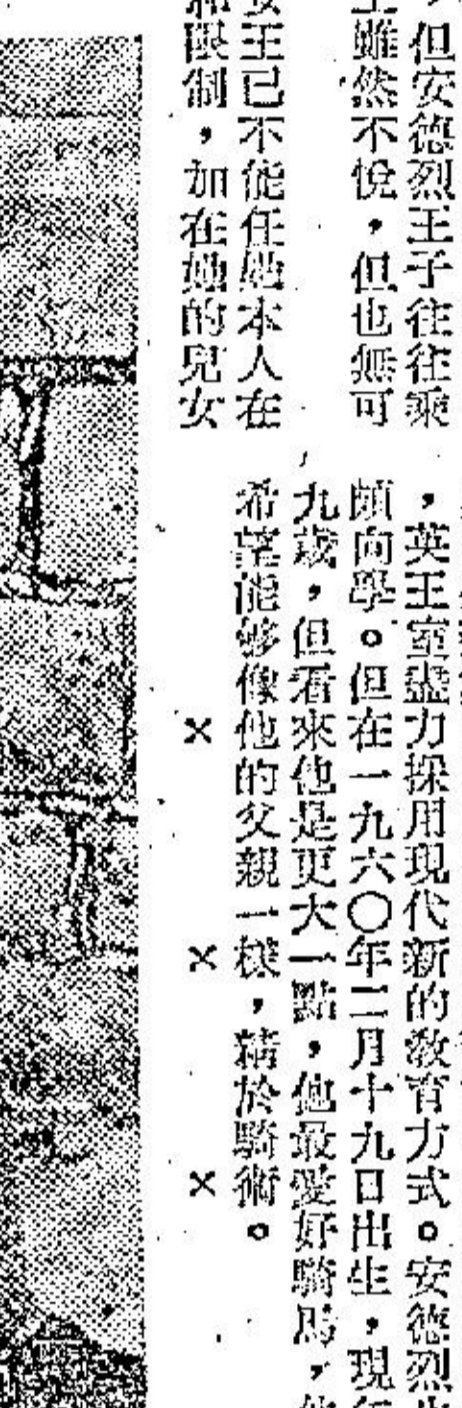 ，但安德烈王子往往乘
雖然不悅，但也無可
女王已不能任她本人在
和限制，加在她的兒女
，英王室盡力採用現代新的教育方式。安德烈
頗向學。但在一九六〇年二月十九日出生，現年
九歲，但看來他是更大一點，他最愛好騎馬，他
希望能够像他的父親一樣，精於騎術。
× × ×